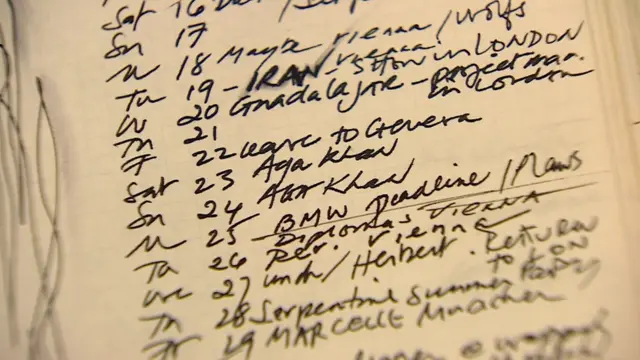 Sat 16
Sn 17
M 18 Maybe Vienna / Wolfs
Tu 19 - IRAN Vienna
W 20 Guadalajore - SHOW IN LONDON
Th 21 project man. in London
F 22 leave to Geneva
Sat 23 Aga Khan
Sn 24 Aga Khan
M 25 BMW Deadline / Maws
Diplomas VIENNA
Tu 26 Rev. Vienna
We 27 / Herbert. RETURN TO LON
Th 28 Serpentine Summer Party
Fr 29 MARCELLE Munchen